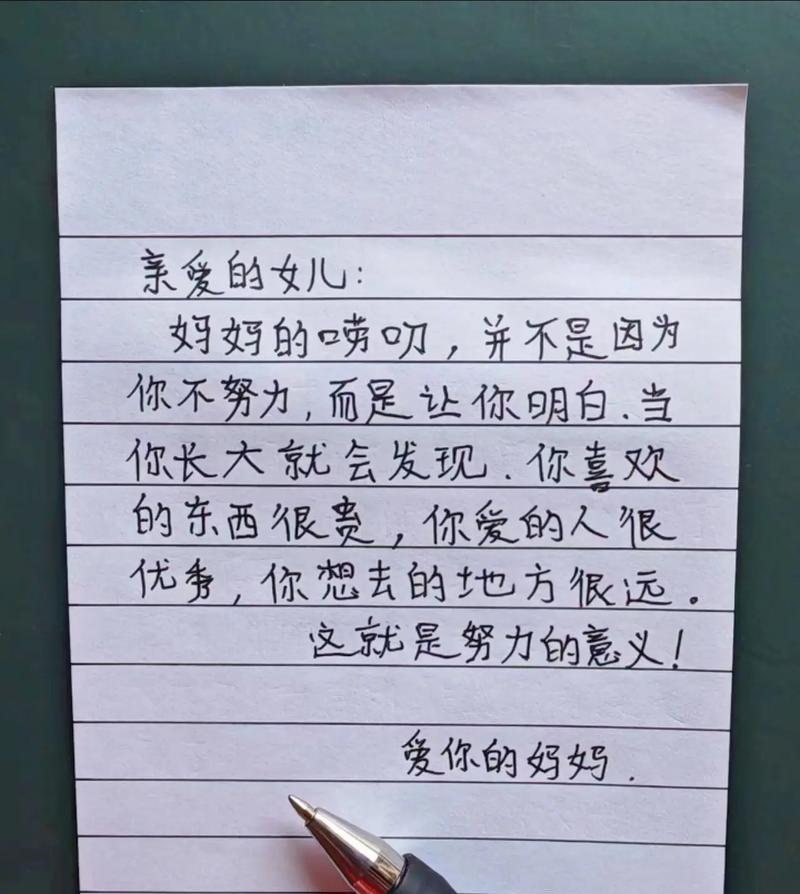 亲爱的女儿:
妈妈的唠叨,并不是因为
你不努力,而是让你明白.当
你长大就会发现.你喜欢
的东西很贵,你爱的人很
优秀,你想去的地方很远。
这就是努力的意义!
爱你的妈妈.